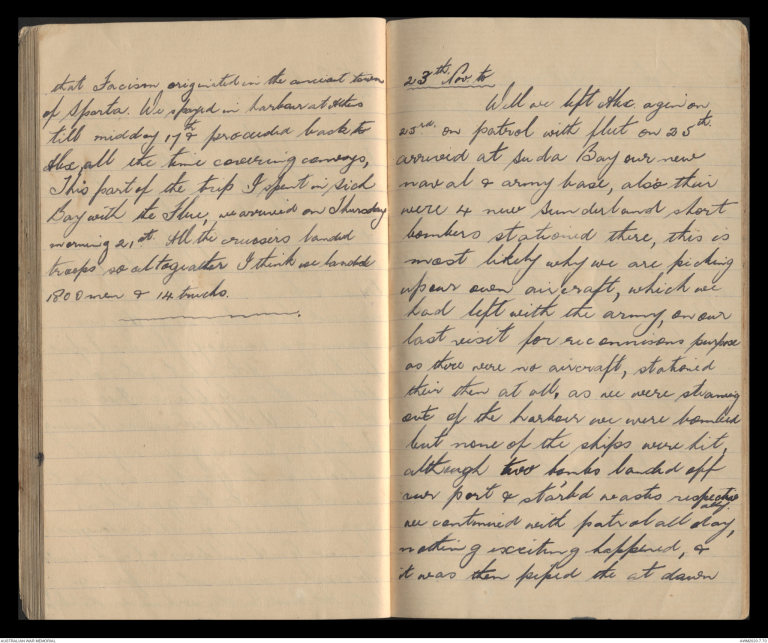 that Facism, originated in the ancient town
of Sparta. We stayed in harbour at
till midday 17th & proceeded back to
Alex, all the time covering convoys,
This part of the trip I spent in Sick
Bay with the Flue, we arrived on Thursday
morning 21st. All the cruisers landed
troops so altogeather I think we landed
1800 men & 14 trucks.
23th Nov to
Well we left Alex. again on
23rd. on patrol with fleet on 25th.
arrived at Suda Bay our new
naval & army base, also their
were 4 new Sunderland short
bombers stationed there, this is
most likely why we are picking
up our own aircraft, which we
had left with the army, on our
last visit for reconnisons purpose
as there were no aircraft, stationed
their then at all, as we were steaming
out of the harbour we were bombed
but none of the ships were hit,
although two bombs landed off
our port & starb'd respectiv
ally.
we continued with patrol all day,
nothing exciting happened, &
it was then piped the at dawn
AUSTRALIAN WAR MEMORIAL